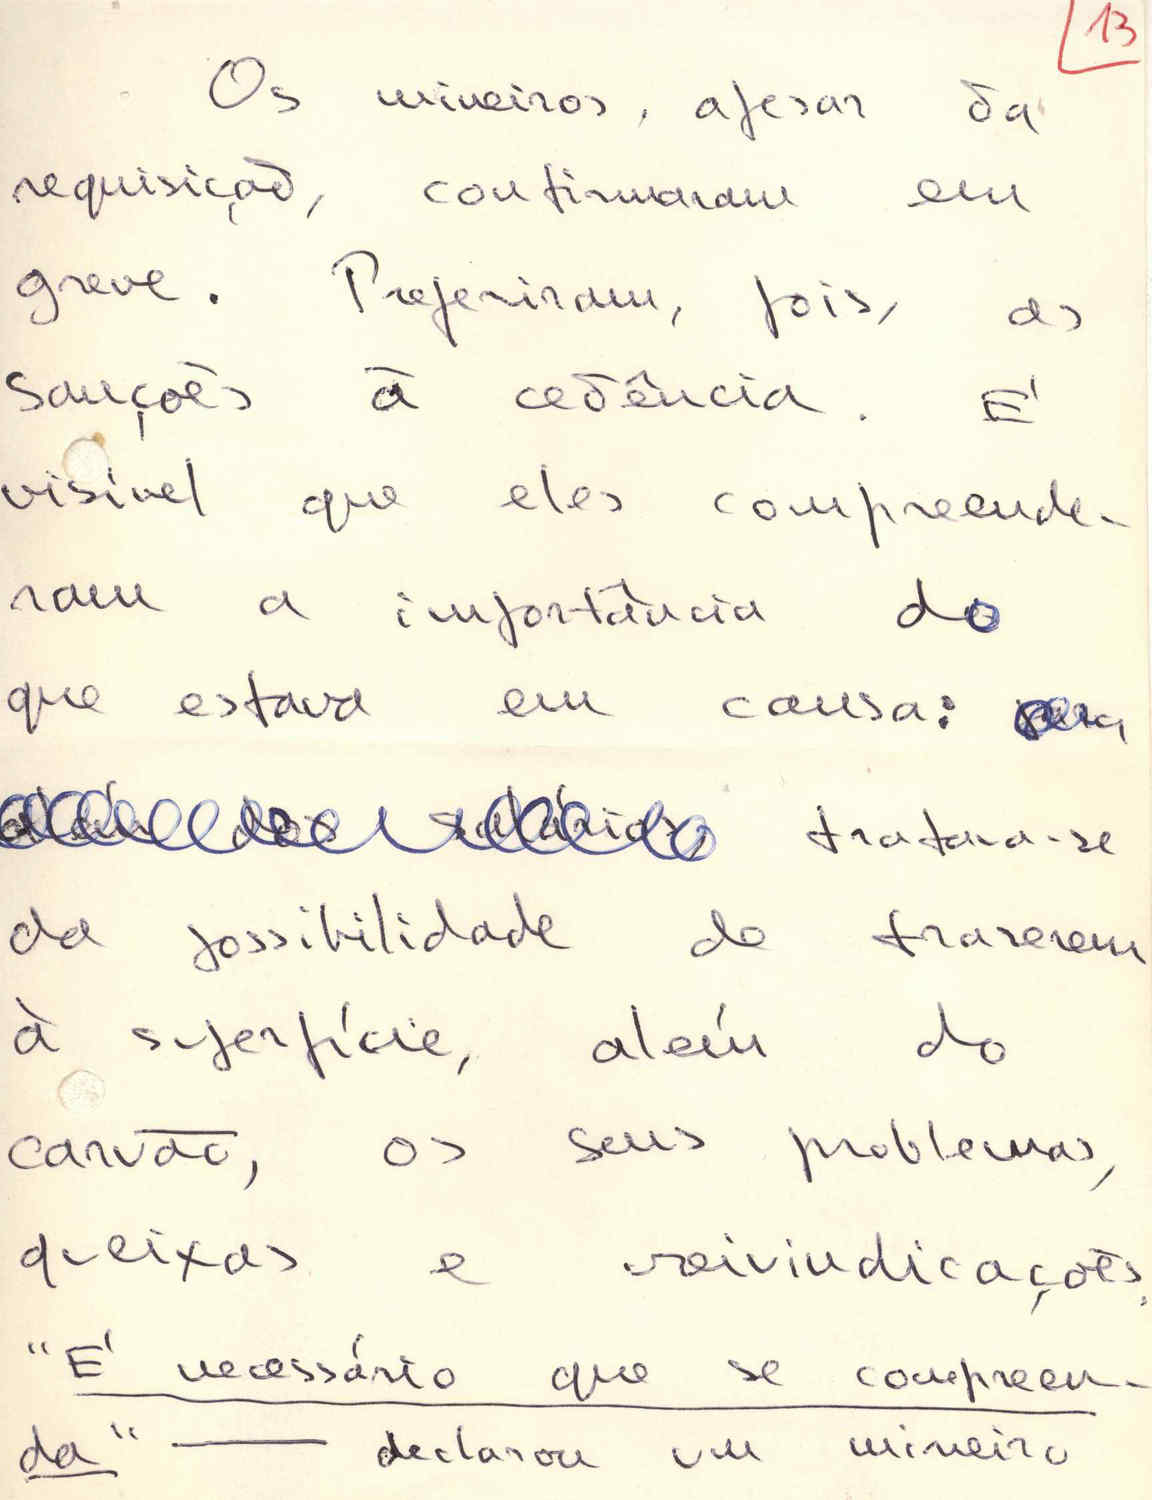 13
Os mineiros, apesar da
requisição, continuaram em
greve. Preferiram, pois, as
sanções à cedência. É
visível que eles compreende-
ram a importância do
que estava em causa:
tratava-se
da possibilidade de trazerem
à superfície, além do
carvão, os seus problemas,
queixas e reivindicações.
"É necessário que se compreen-
da" — declarou um mineiro